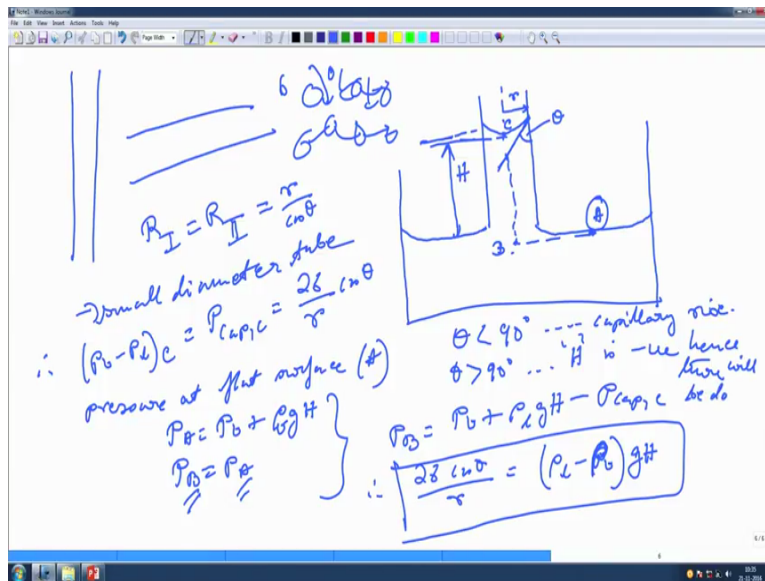 Note1 - Windows Journal
File Edit View Insert Actions Tools Help
Page Width
R_I = R_II = r/cosθ
→ small diameter tube
∴ (P_v - P_l)_C = P_cap,c = 2γ/r cosθ
pressure at flat surface (A)
P_A = P_v + ρ_v gH
P_B = P_A
r
θ
C
H
A
B
θ < 90° .... capillary rise.
θ > 90° ... H is -ve hence
there will
be do
P_B = P_v + ρ_l gH - P_cap,c
∴ 2γ cosθ/r = (ρ_l - ρ_v) gH
6
6/6
10:35
21-11-2016